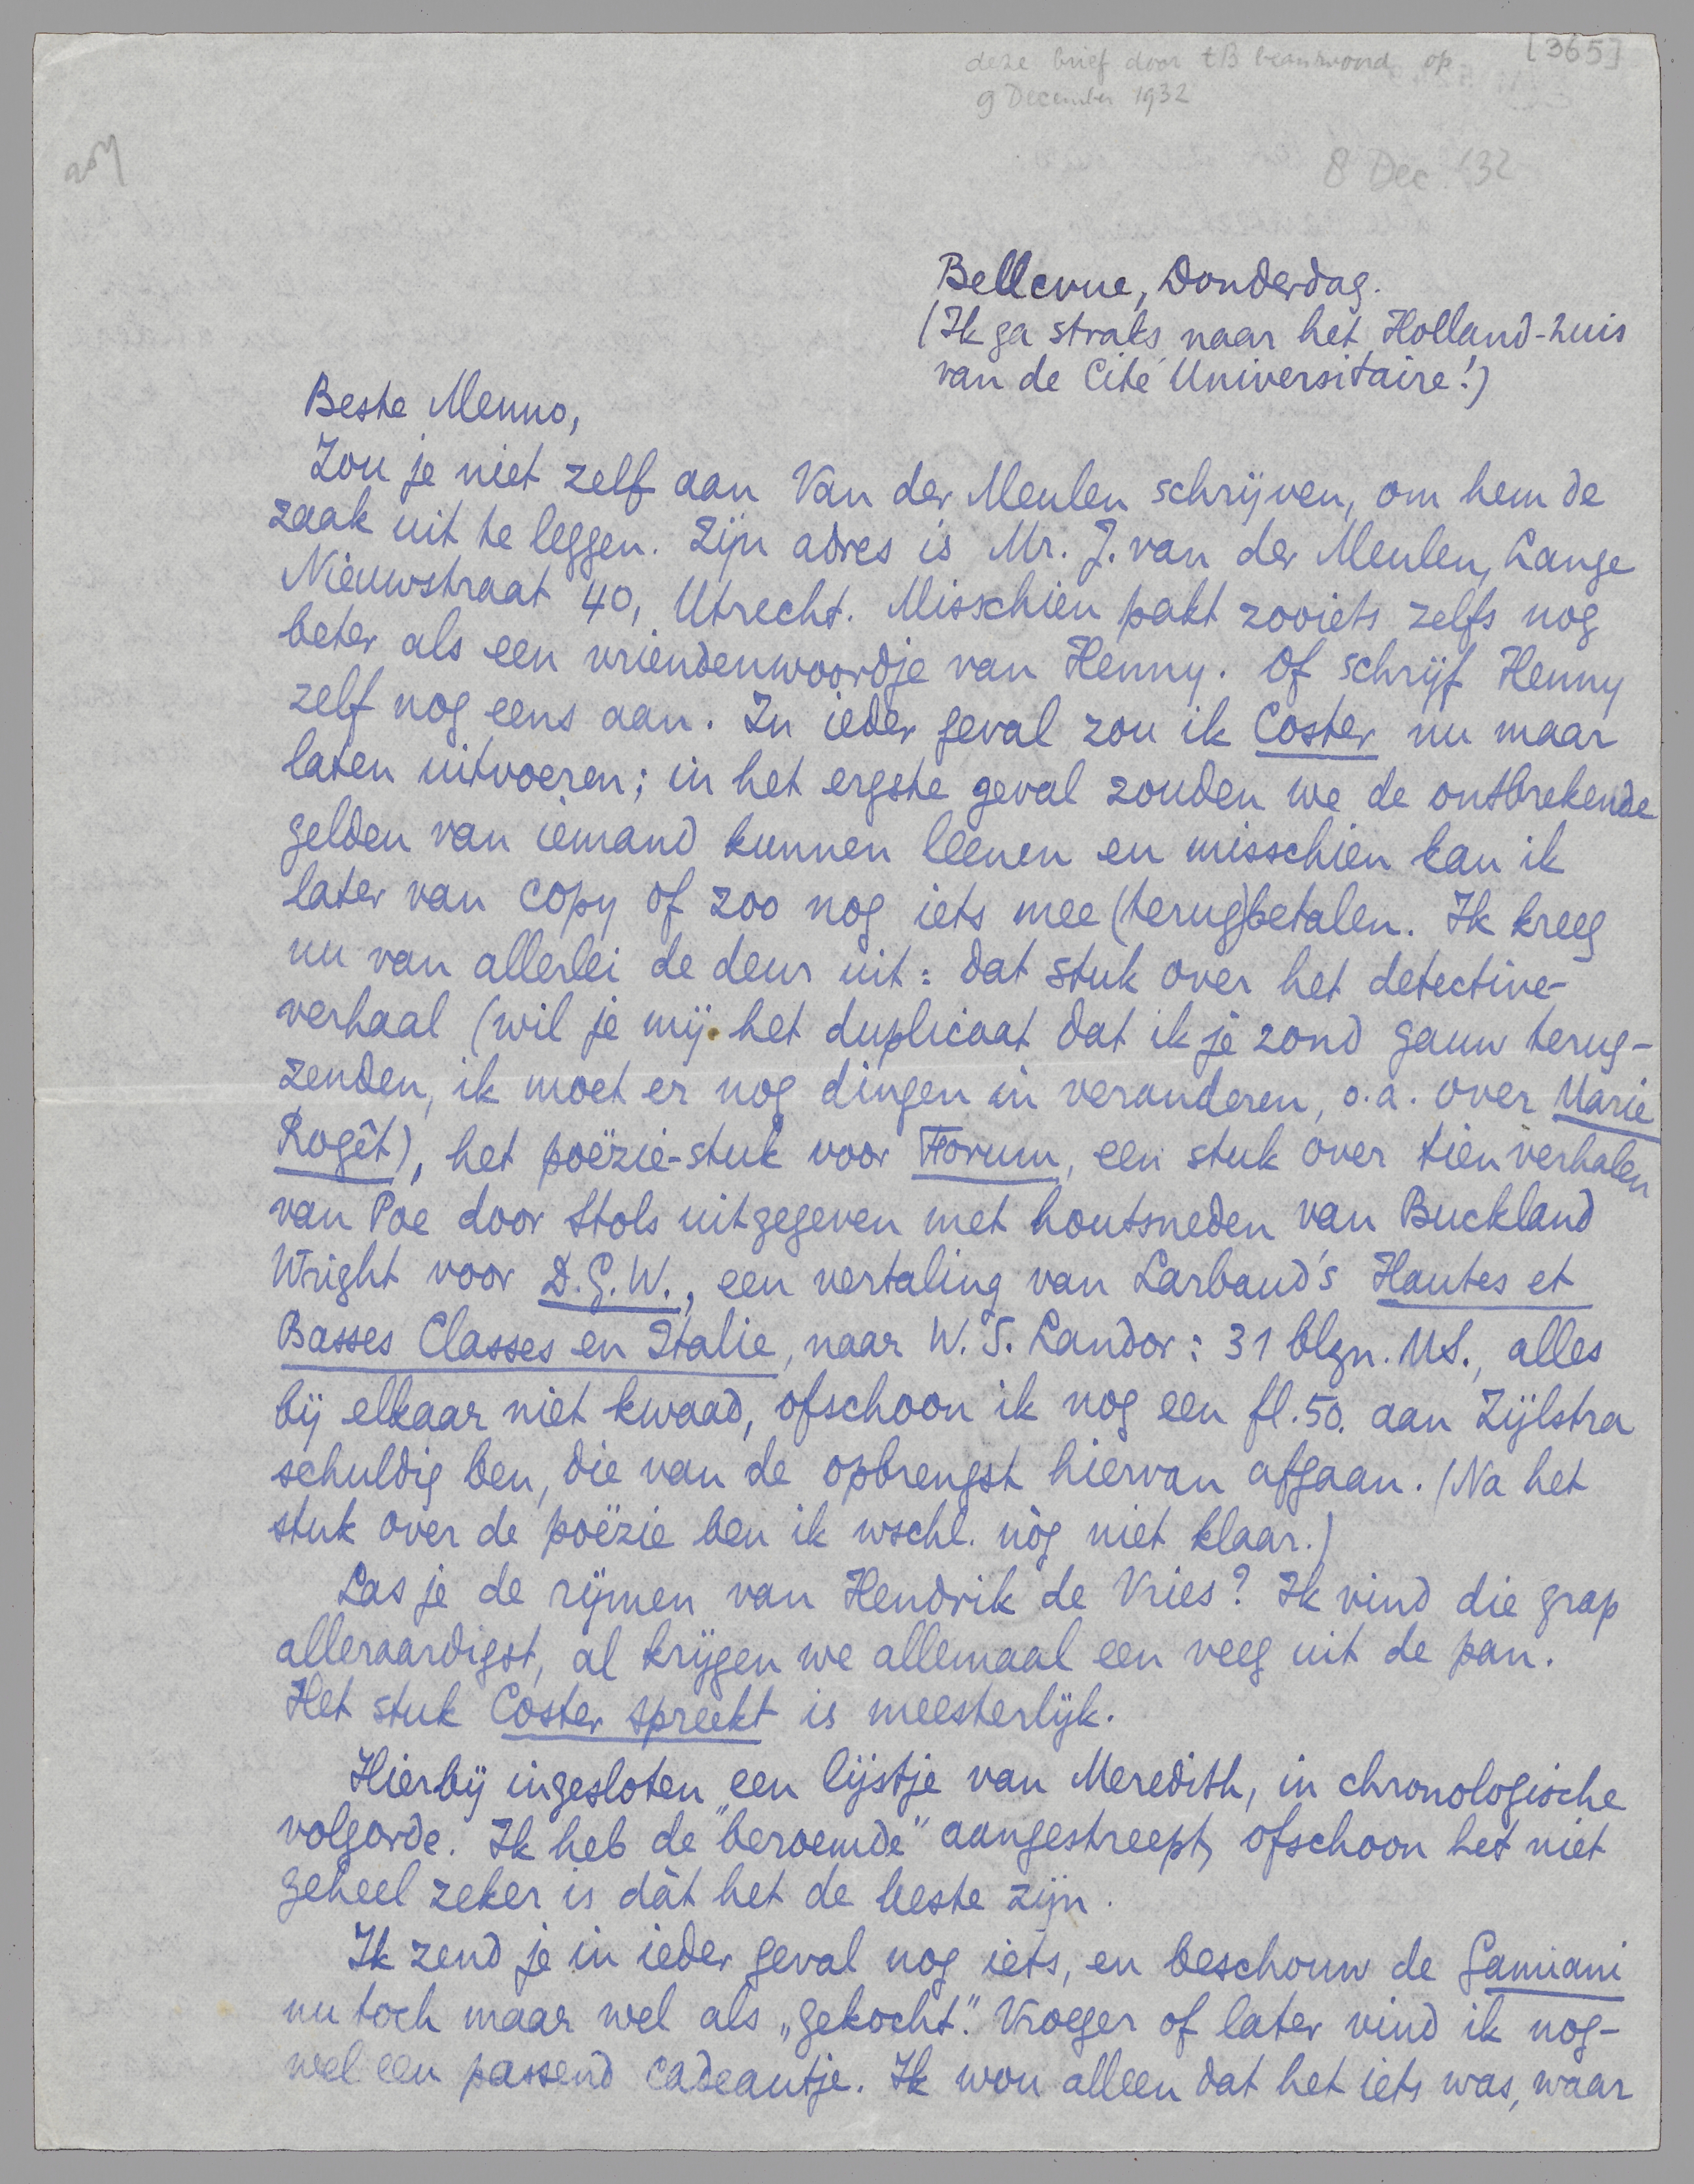 [365]
deze brief door tB beantwoord op
9 December 1932
8 Dec. '32
Bellevue, Donderdag.
(Ik ga straks naar het Holland-huis
van de Cité Universitaire!)
Beste Menno,
Zou je niet zelf aan Van der Meulen schrijven, om hem de
zaak uit te leggen. Zijn adres is Mr. J. van der Meulen, Lange
Nieuwstraat 40, Utrecht. Misschien pakt zooiets zelfs nog
beter als een vriendenwoordje van Henny. Of schrijf Henny
zelf nog eens aan. In ieder geval zou ik Coster nu maar
laten uitvoeren; in het ergste geval zouden we de ontbrekende
gelden van iemand kunnen leenen en misschien kan ik
later van copy of zoo nog iets mee (terug)betalen. Ik kreeg
nu van allerlei de deur uit: dat stuk over het detective-
verhaal (wil je mij het duplicaat dat ik je zond gauw terug-
zenden, ik moet er nog dingen in veranderen, o.a. over Marie
Rogêt), het poëzie-stuk voor Forum, een stuk over tien verhalen
van Poe door Stols uitgegeven met houtsneden van Buckland
Wright voor D.G.W., een vertaling van Larbaud's Hautes et
Basses Classes en Italie, naar W.S. Landor: 31 blzn. MS., alles
bij elkaar niet kwaad, ofschoon ik nog een fl. 50. aan Zijlstra
schuldig ben, die van de opbrengst hiervan afgaan. (Na het
stuk over de poëzie ben ik wschl. nòg niet klaar.)
Las je de rijmen van Hendrik de Vries? Ik vind die grap
alleraardigst, al krijgen we allemaal een veeg uit de pan.
Het stuk Coster spreekt is meesterlijk.
Hierbij ingesloten een lijstje van Meredith, in chronologische
volgorde. Ik heb de "beroemde" aangestreept, ofschoon het niet
geheel zeker is dàt het de beste zijn.
Ik zend je in ieder geval nog iets, en beschouw de Gamiani
nu toch maar wel als „gekocht". Vroeger of later vind ik nog-
wel een passend cadeautje. Ik wou alleen dat het iets was, waar